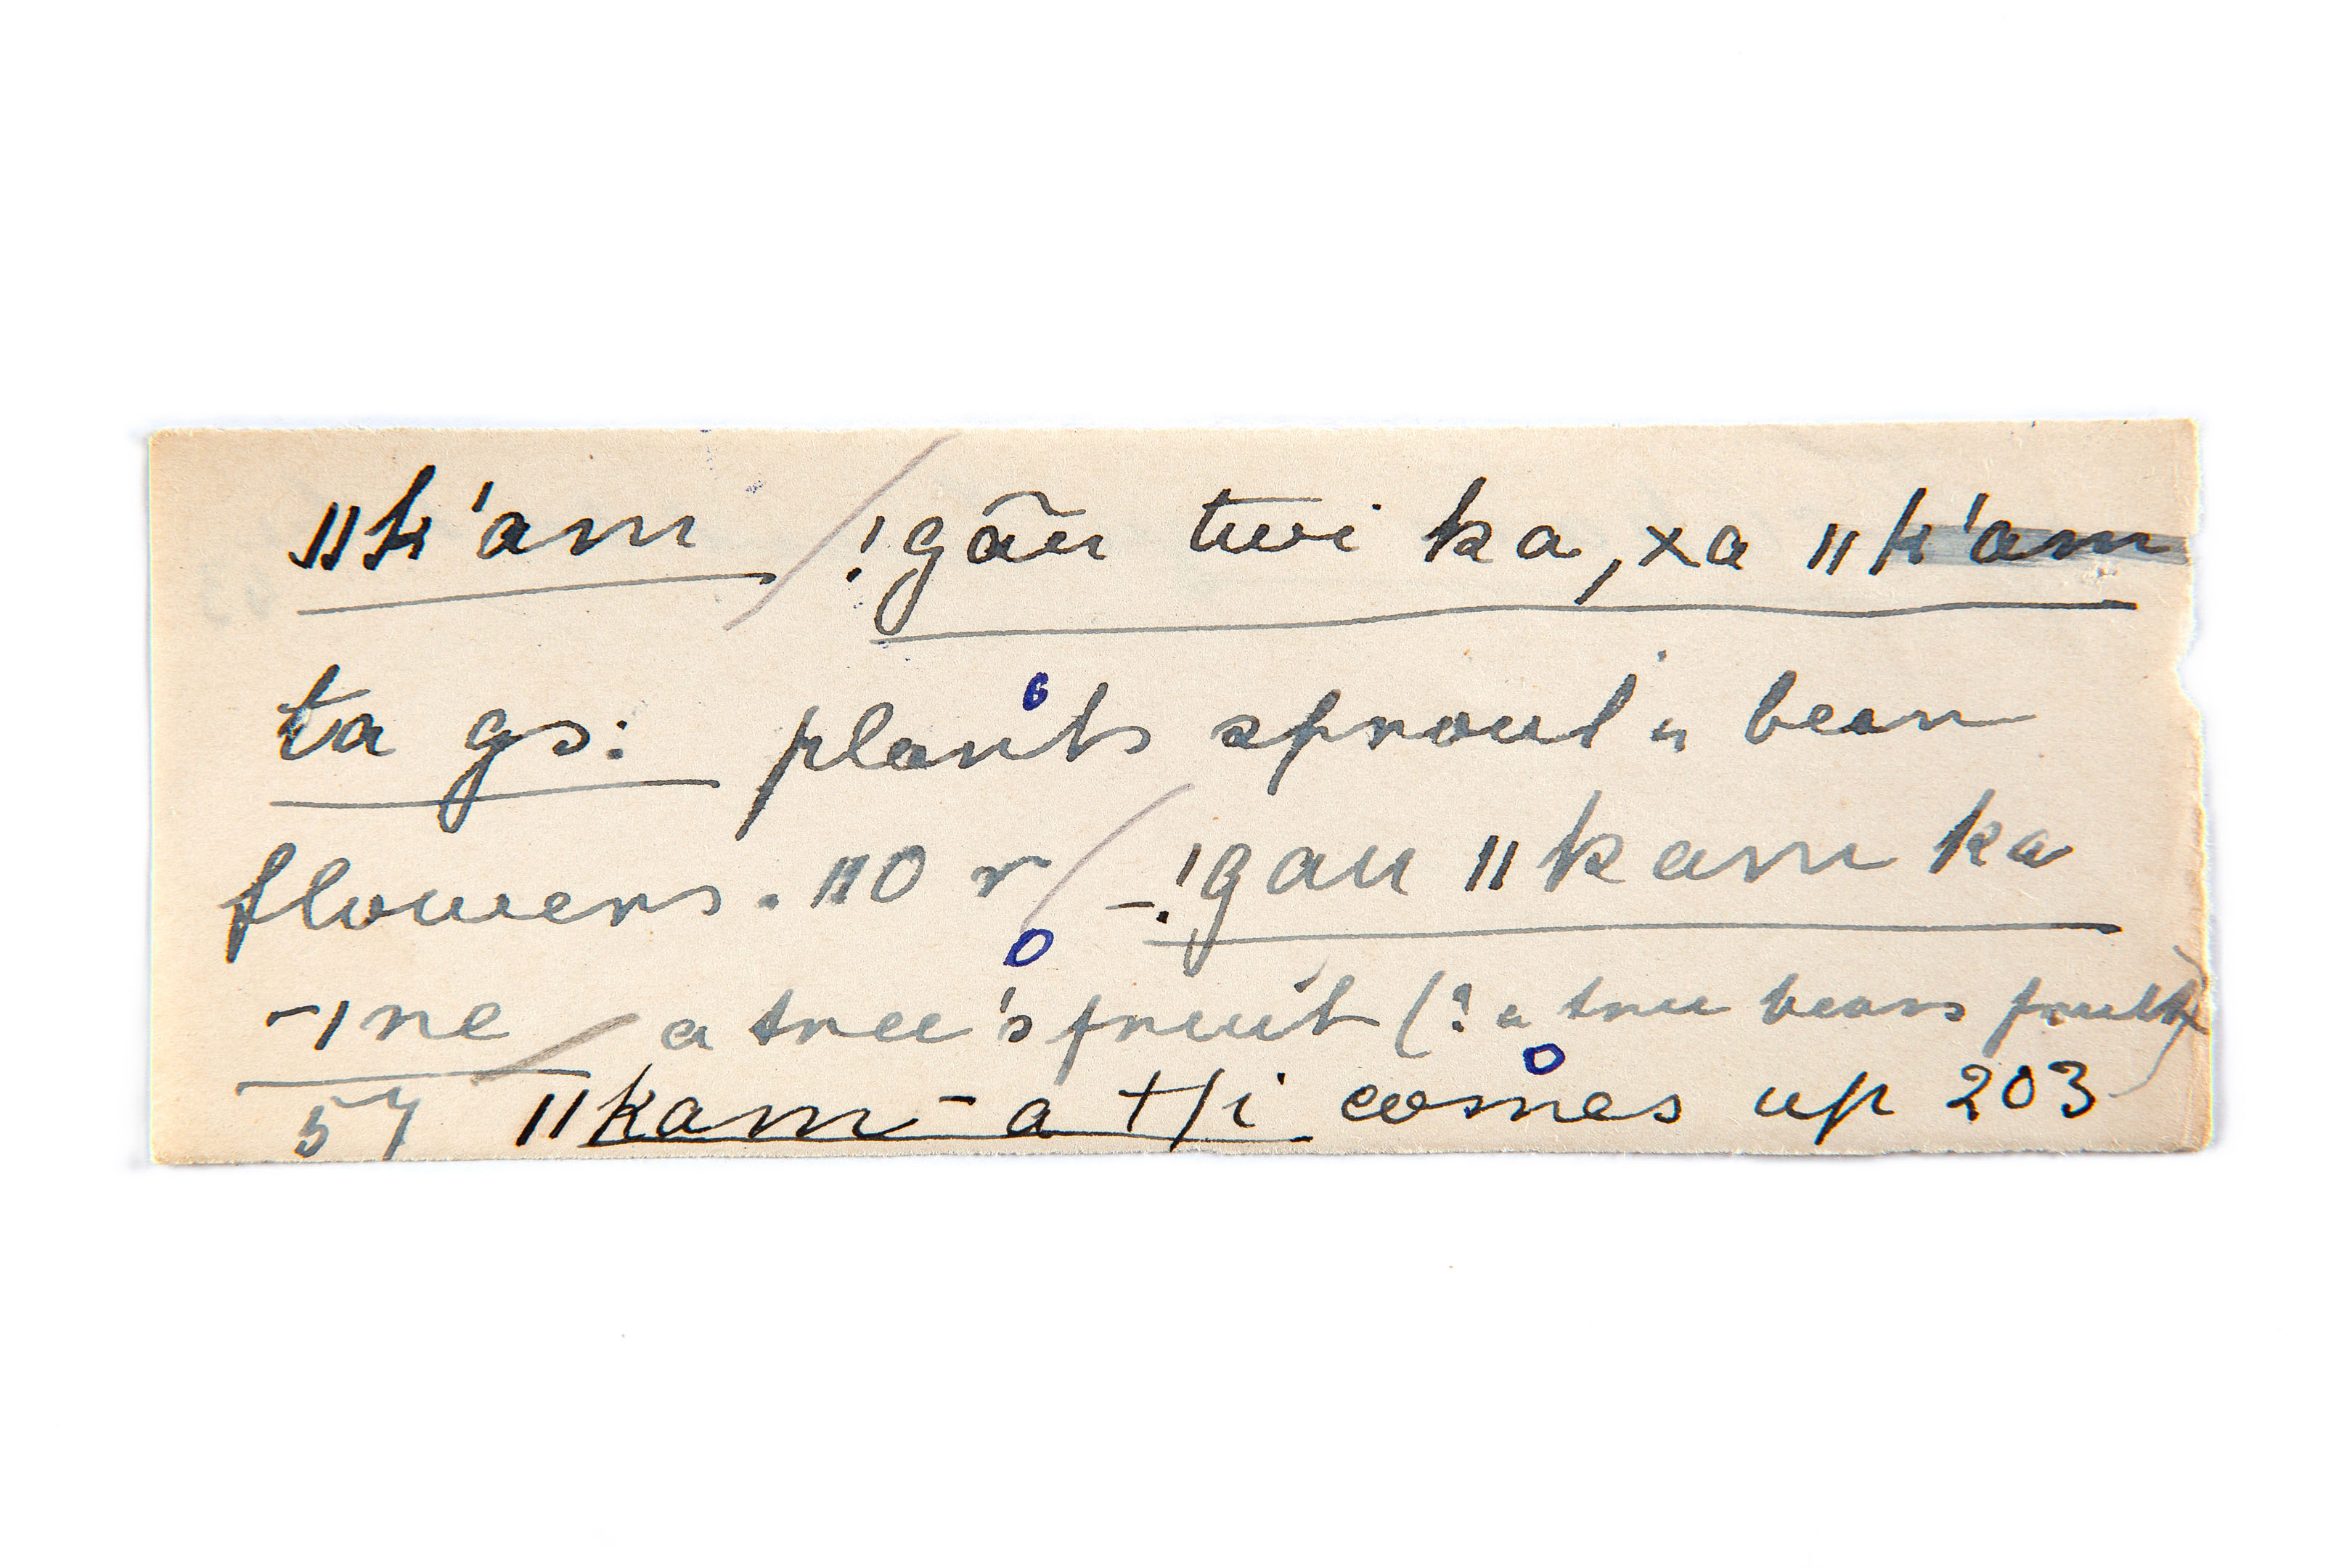 ǁk'am / !gãu twi ka, xa ǁk'am
ta gs: plants sprout & bear
flowers. 110 r / -!gau ǁkam ka
-ǀne / a tree's fruit (? a tree bears fruit)
57 ǁkam-a ti comes up 203